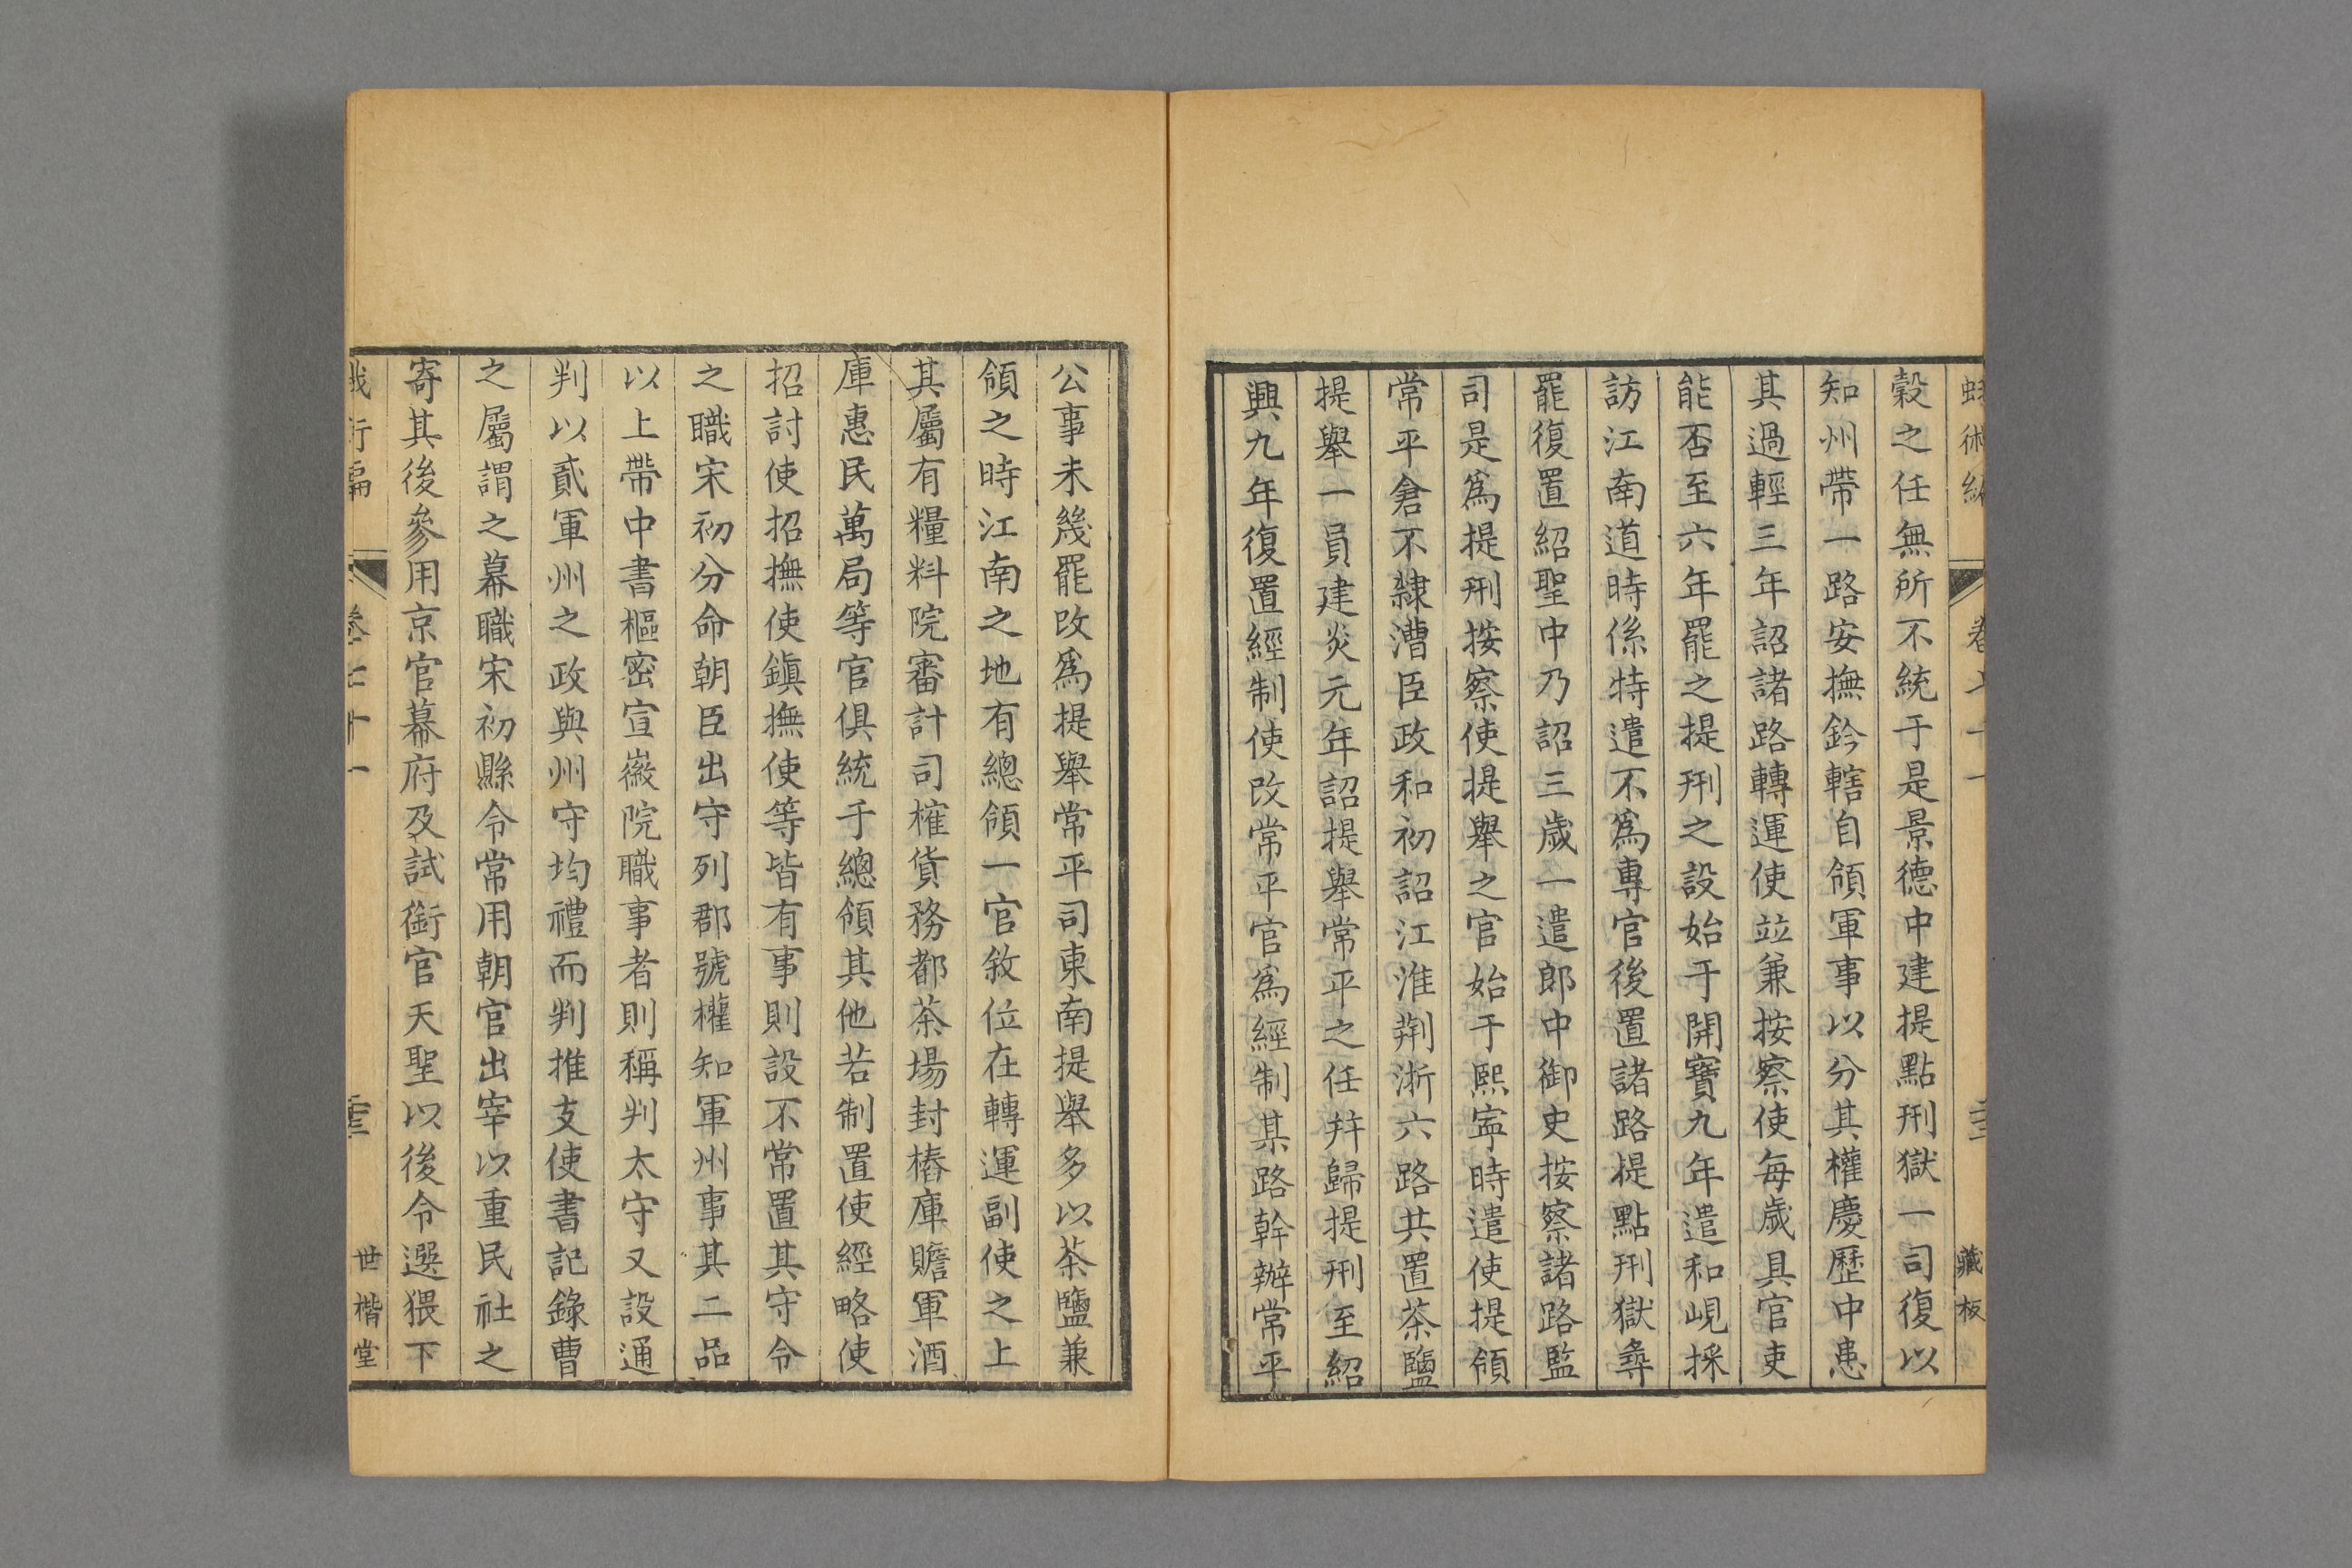 蛾術編 卷七十一 藏板
穀之任無所不統于是景德中建提點刑獄一司復以
知州帶一路安撫鈐轄自領軍事以分其權慶歷中患
其過輕三年詔諸路轉運使並兼按察使每歲具官吏
能否至六年罷之提刑之設始于開寶九年遣和峴採
訪江南道時係特遣不為專官後置諸路提點刑獄尋
罷復置紹聖中乃詔三歲一遣郎中御史按察諸路監
司是為提刑按察使提舉之官始于熙寧時遣使提領
常平倉不隸漕臣政和初詔江淮荆浙六路共置茶鹽
提舉一員建炎元年詔提舉常平之任幷歸提刑至紹
興九年復置經制使改常平官為經制某路幹辦常平
公事未幾罷改為提舉常平司東南提舉多以茶鹽兼
領之時江南之地有總領一官敘位在轉運副使之上
其屬有糧料院審計司榷貨務都茶場封樁庫贍軍酒
庫惠民萬局等官俱統于總領其他若制置使經略使
招討使招撫使鎮撫使等皆有事則設不常置其守令
之職宋初分命朝臣出守列郡號權知軍州事其二品
以上帶中書樞密宣徽院職事者則稱判太守又設通
判以貳軍州之政與州守均禮而判推支使書記錄曹
之屬謂之幕職宋初縣令常用朝官出宰以重民社之
寄其後參用京官幕府及試銜官天聖以後令選猥下
蛾術編 卷七十一 世楷堂